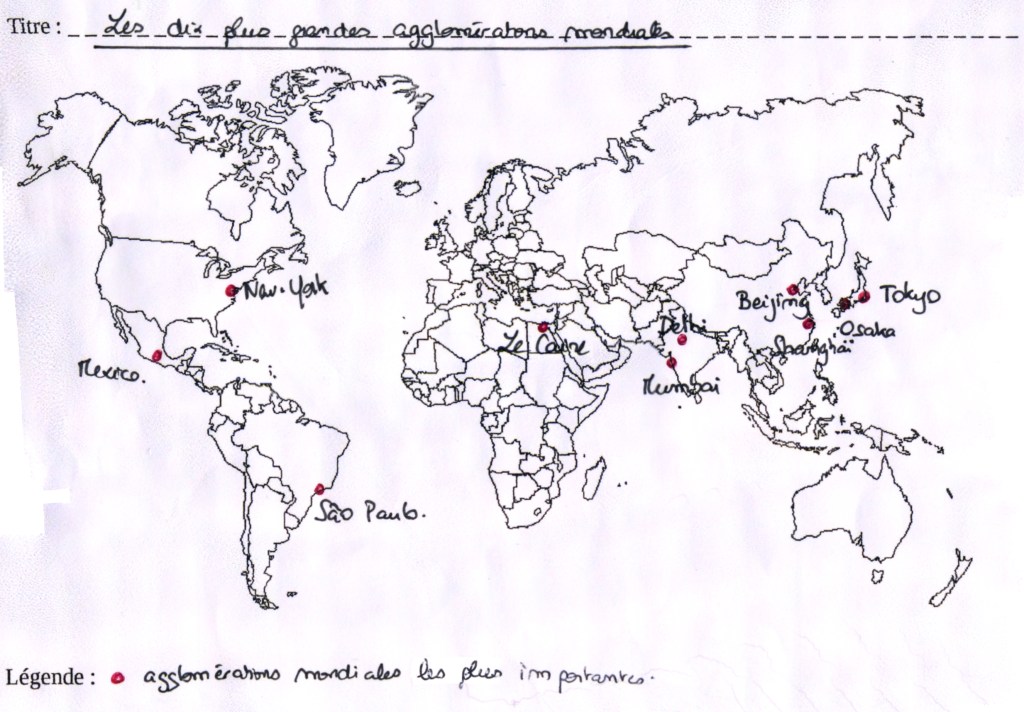 Titre : Les dix plus grandes agglomérations mondiales
New-York
Mexico.
São Paulo.
Le Caire
Delhi
Mumbai
Beijing
Tokyo
Osaka
Shanghaï
Légende : agglomérations mondiales les plus importantes.